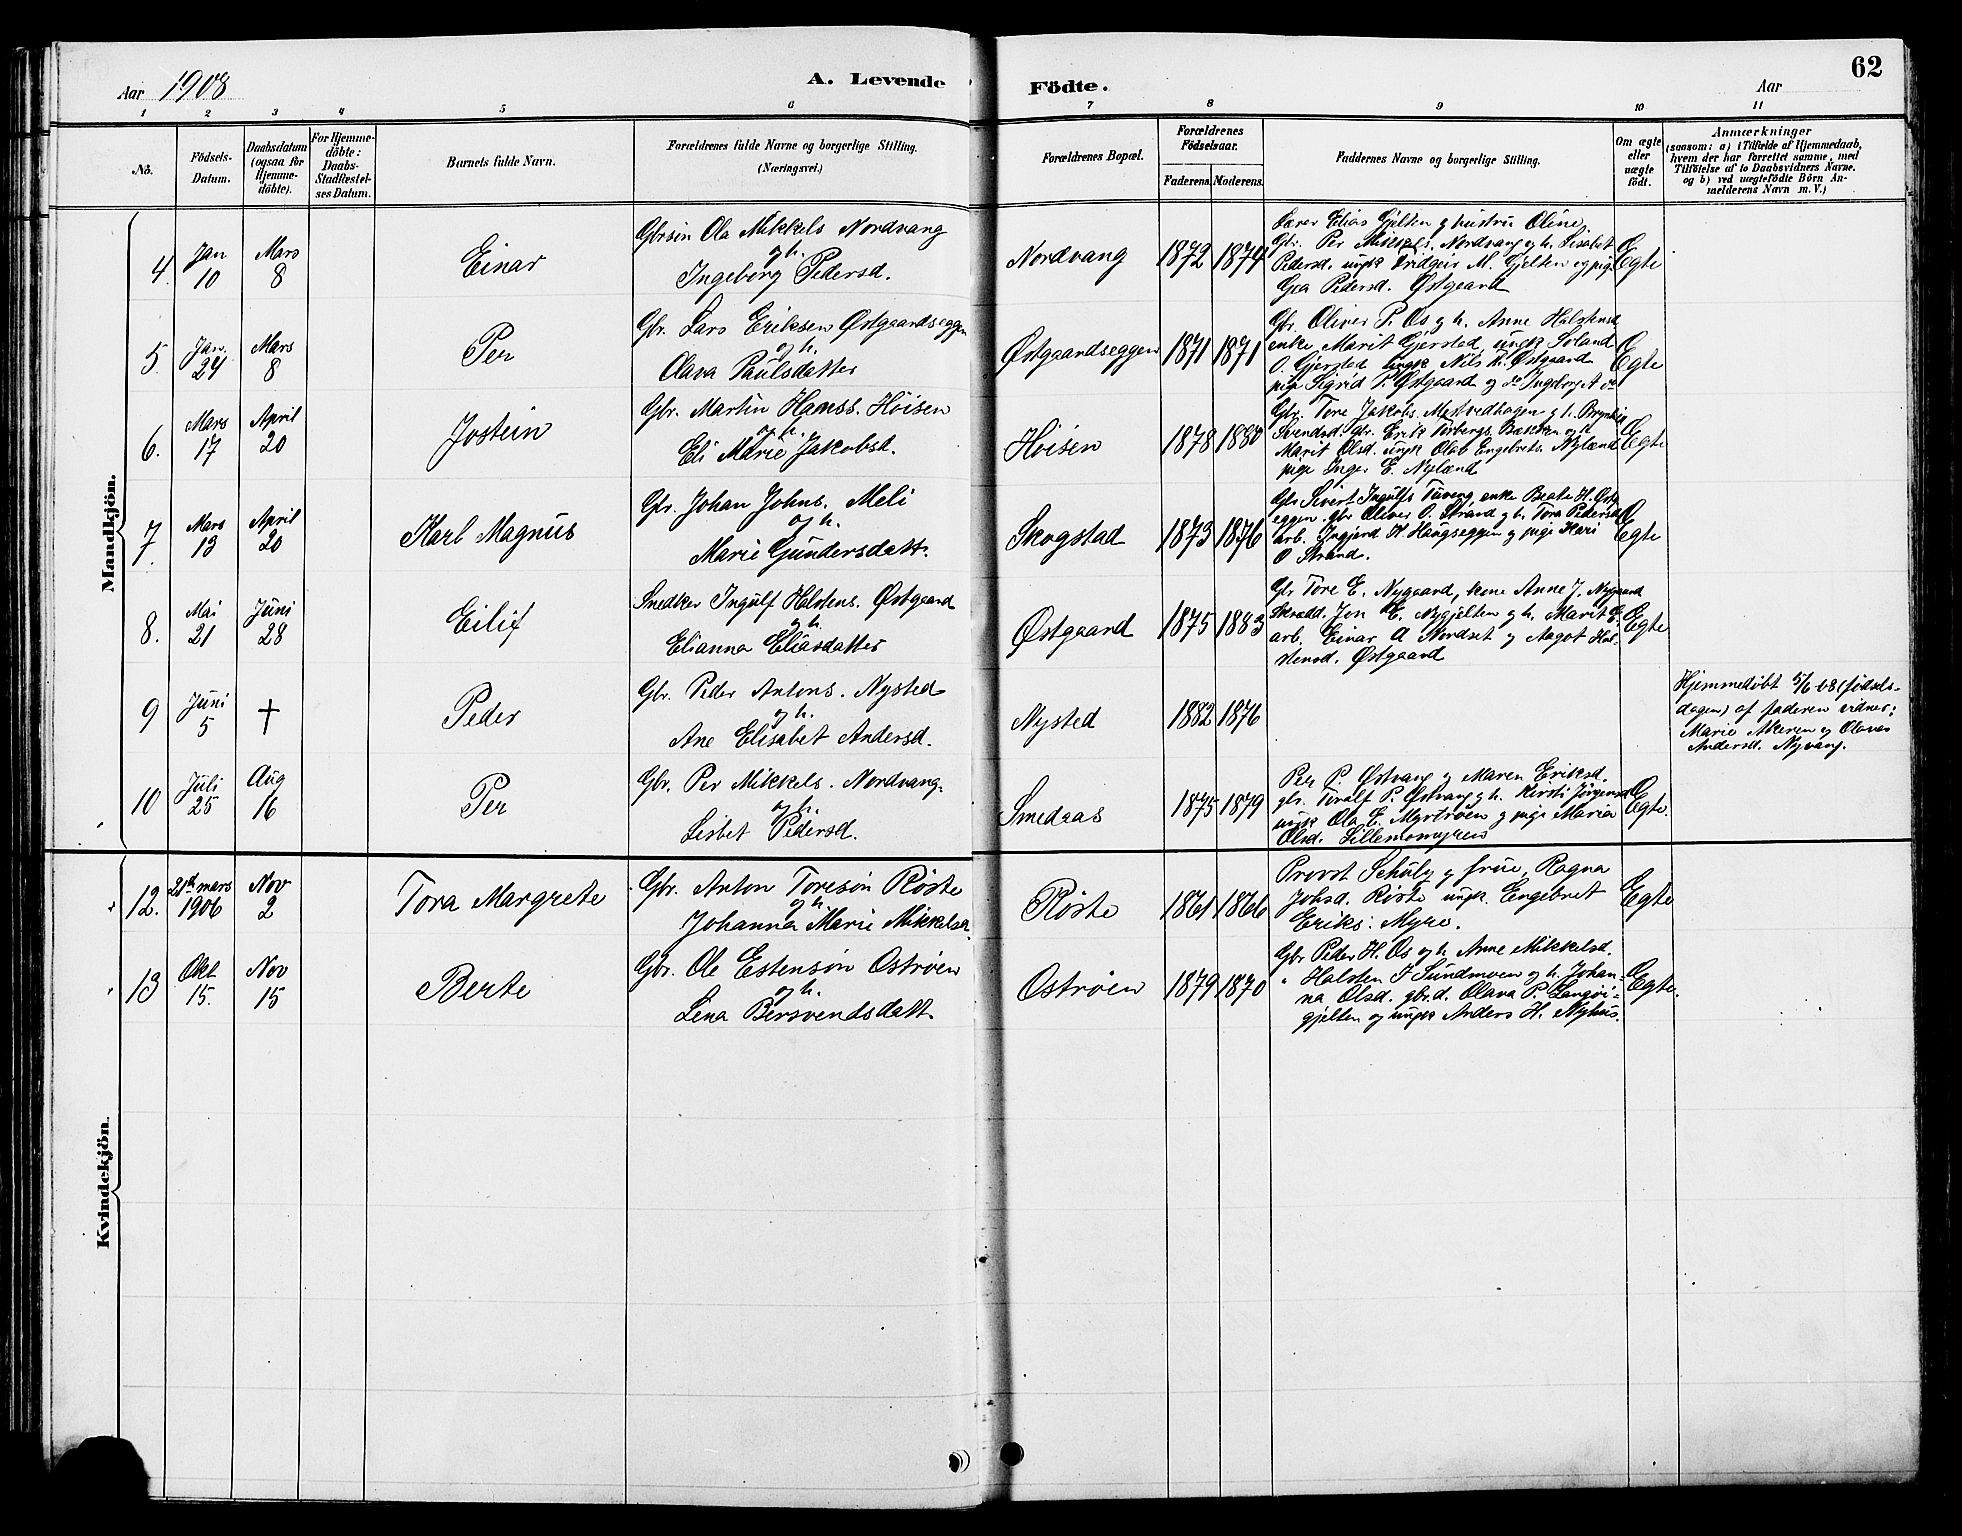 Aar 1908
A. Levende
Födte.
Aar
62
1 2 3 4 5 6 7 8 9 10 11
No.
Födsels-
Datum.
Daabsdatum
(ogsaa for
Hjemme-
döbte).
For Hjemme-
döbte:
Daabs-
Stadfæstel-
ses Datum.
Barnets fulde Navn.
Forældrenes fulde Navne og borgerlige Stilling.
(Næringsvei.)
Forældrenes Bopæl.
Forældrenes
Födselsaar.
Faderens. Moderens.
Faddernes Navne og borgerlige Stilling.
Om ægte
eller
uægte
födt.
Anmærkninger
(saasom: a) i Tilfælde af Hjemmedaab,
hvem der har forrettet samme, med
Tilföielse af to Daabsvidners Navne.
og b) ved uægtefödte Börn An-
melderens Navn m. V.)
Mandkjön.
4. Jan 10 Mars 8 Einar
Gbrsön Ola Mikkels Nordvang
og h.
Ingeborg Pedersd.
Nordvang 1872 1874
Lærer Elias Gjelten og hustru Oline,
Gbr. Per Mikkels. Nordvang og h. Lisabet
Pedersd. ungk M. Gjelten og pige
Goa Pedersd. Østgaard
Egte
5. Jan. 24 Mars 8 Per
Gbr. Lars Eriksen Østgaardseggen
og h.
Olava Paulsdatter
Østgaardseggen 1871 1871
Gbr. Oliver P. Os og h. Anne Halstensd
enke Marit Gjersted, ungk
O. Gjersted ungk Nils Østgaard
pige Sigrid P. Østgaard og do Ingeborg A do
Egte
6. Mars 17 April 20 Jostein
Gbr. Martin Hanss. Höisen
og h.
Eli Marie Jakobsd.
Höisen 1878 1880
Gbr. Tore Jakobs. og h.
Svendsd. Gbr. Erik Bakken og h
Marit Olsd. ungk Olab Engebrets. Nyland
pige Inger E. Nyland
Egte
7. Mars 13 April 20 Karl Magnus
Gbr. Johan Johns. Meli
og h.
Marie Gundersdatt.
Skogstad 1873 1876
Gbr Sivert Ingulfs Tuveng, enke Beate H. Østg
eggen. gbr Oliver O. Strand og h. Tora Pedersd
arb. H. Haugseggen og pige Kari
O Strand.
Egte
8. Mai 21 Juni 28 Eilif
Snedker Ingulf Halstens. Østgaard
og h.
Elianna Eliasdatter
Østgaard 1875 1883
Gbr Tore E. Nygaard, kone Anne J. Nygaard
Skrædd. Jon E. Nygjelten og h. Marit E.
arb. Einar A Nordset og Aagot Hal-
stensd. Østgaard
Egte
9 Juni 5 † Peder
Gbr. Peder Antons. Nysted
og h.
Ane Elisabet Andersd.
Nysted 1882 1876
Hjemmedøbt 5/6 08 (fødsels-
dagen) af faderen vidner:
Marie Akeren og Olava
Andersd. Nyvang.
10 Juli 25 Aug 16 Per
Gbr. Per Mikkels. Nordvang.
og h.
Lisbet Pedersd.
Smedaas 1875 1879
Per P. Østvang og Maren Eriksd.
gbr. P. Østvang og h. Kirsti Jörgensd
ungk Ola E. Myrtrøen og pige Maria
Olsd. Lillemomyren
Egte.
Kvindekjön.
12. 21de mars 1906 Nov 2 Tora Margrete
Gbr. Anton Toresön Röste
og h.
Johanna Marie Mikkelsd.
Röste 1861 1866
Provst Schulz og frue, Ragna
Johsd. Röste ungk. Engebret
Eriks. Myre.
Egte
13 Okt 15. Nov 15 Berte
Gbr. Ole Estensön Oströen
og h.
Lena Bersvendsdatt.
Oströen 1879 1870
Gbr Peder H. Os og h. Anne Mikkelsd.
" Halsten J Sundmoen og h. Johan-
na Olsd. gbr.d. Olava P. Langöi-
gjelten og ungk Anders H. Nyhus.
Egte.